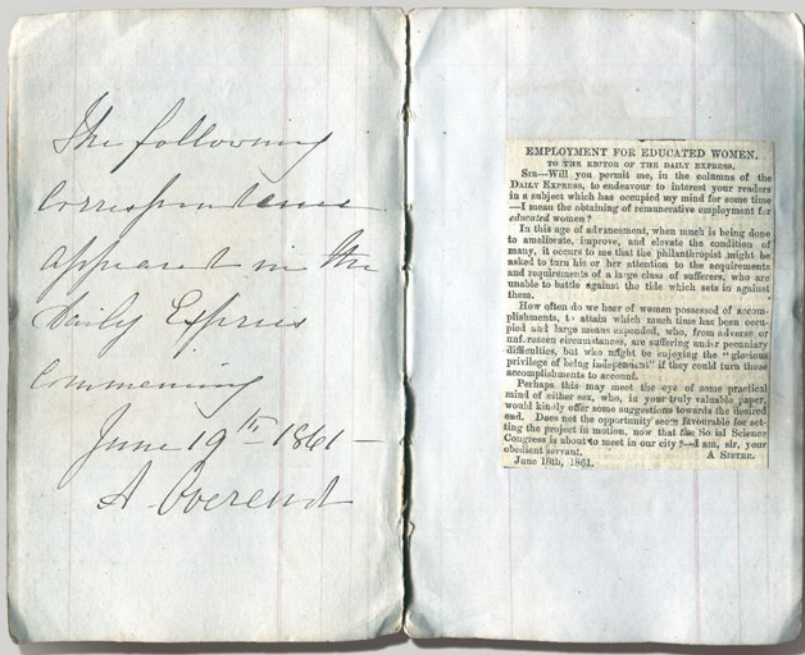 The following
Correspondence
appeared in the
Daily Express
Commencing
June 19th 1861 -
A Overend
EMPLOYMENT FOR EDUCATED WOMEN.
TO THE EDITOR OF THE DAILY EXPRESS.
SIR—Will you permit me, in the columns of the
DAILY EXPRESS, to endeavour to interest your readers
in a subject which has occupied my mind for some time
—I mean the obtaining of remunerative employment for
educated women?
In this age of advancement, when much is being done
to ameliorate, improve, and elevate the condition of
many, it occurs to me that the philanthropist might be
asked to turn his or her attention to the acquirements
and requirements of a large class of sufferers, who are
unable to battle against the tide which sets in against
them.
How often do we hear of women possessed of accom-
plishments, to attain which much time has been occu-
pied and large means expended, who, from adverse or
unforeseen circumstances, are suffering under pecuniary
difficulties, but who might be enjoying the "glorious
privilege of being independent" if they could turn those
accomplishments to account.
Perhaps this may meet the eye of some practical
mind of either sex, who, in your truly valuable paper,
would kindly offer some suggestions towards the desired
end. Does not the opportunity seem favourable for set-
ting the project in motion, now that the Social Science
Congress is about to meet in our city?—I am, sir, your
obedient servant,
A SISTER.
June 18th, 1861.